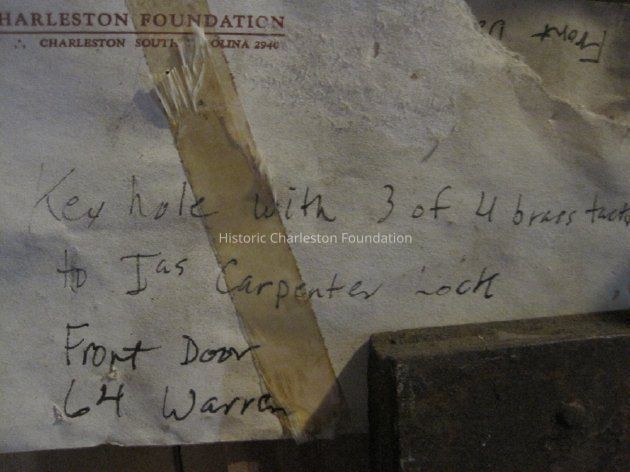 HARLESTON FOUNDATION
CHARLESTON SOUTH OLINA 2940
Front
Key hole with 3 of 4 brass tacks
Historic Charleston Foundation
to Jas Carpenter Lock
Front Door
64 Warren